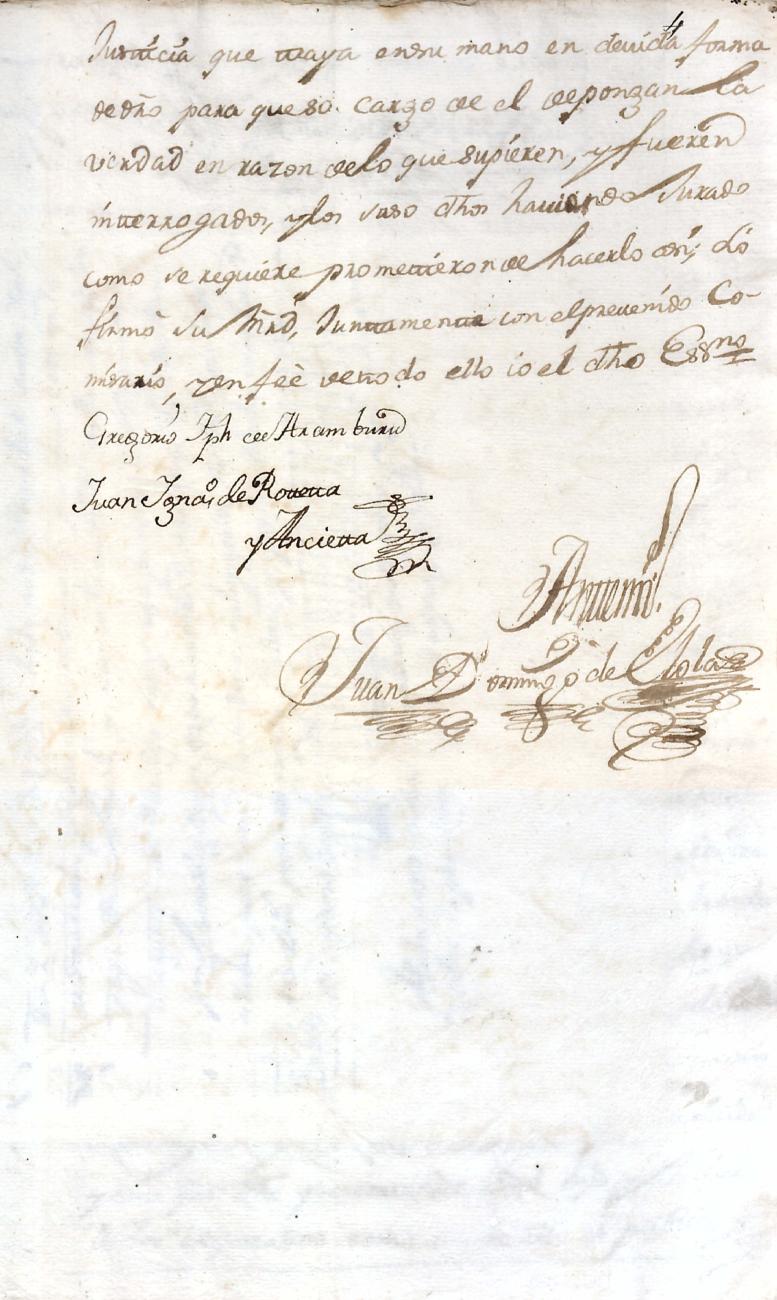 Justicia que traya en su mano en devida forma
de dro para que so cargo de el depongan la
verdad en razon de lo que supieren, y fueren
interrogados, y los suso dhos haviendo Jurado
como se requiere prometieron de hacerlo assi; lo
firmò su Mrd, Juntamente con el prevenido Co-
misario, y en feè de todo ello io el dho Essno
Gregorio Jph de Aramburu
Juan Ignaº de Rotetta
y Ancietta
Antemi
Juan Domingo de